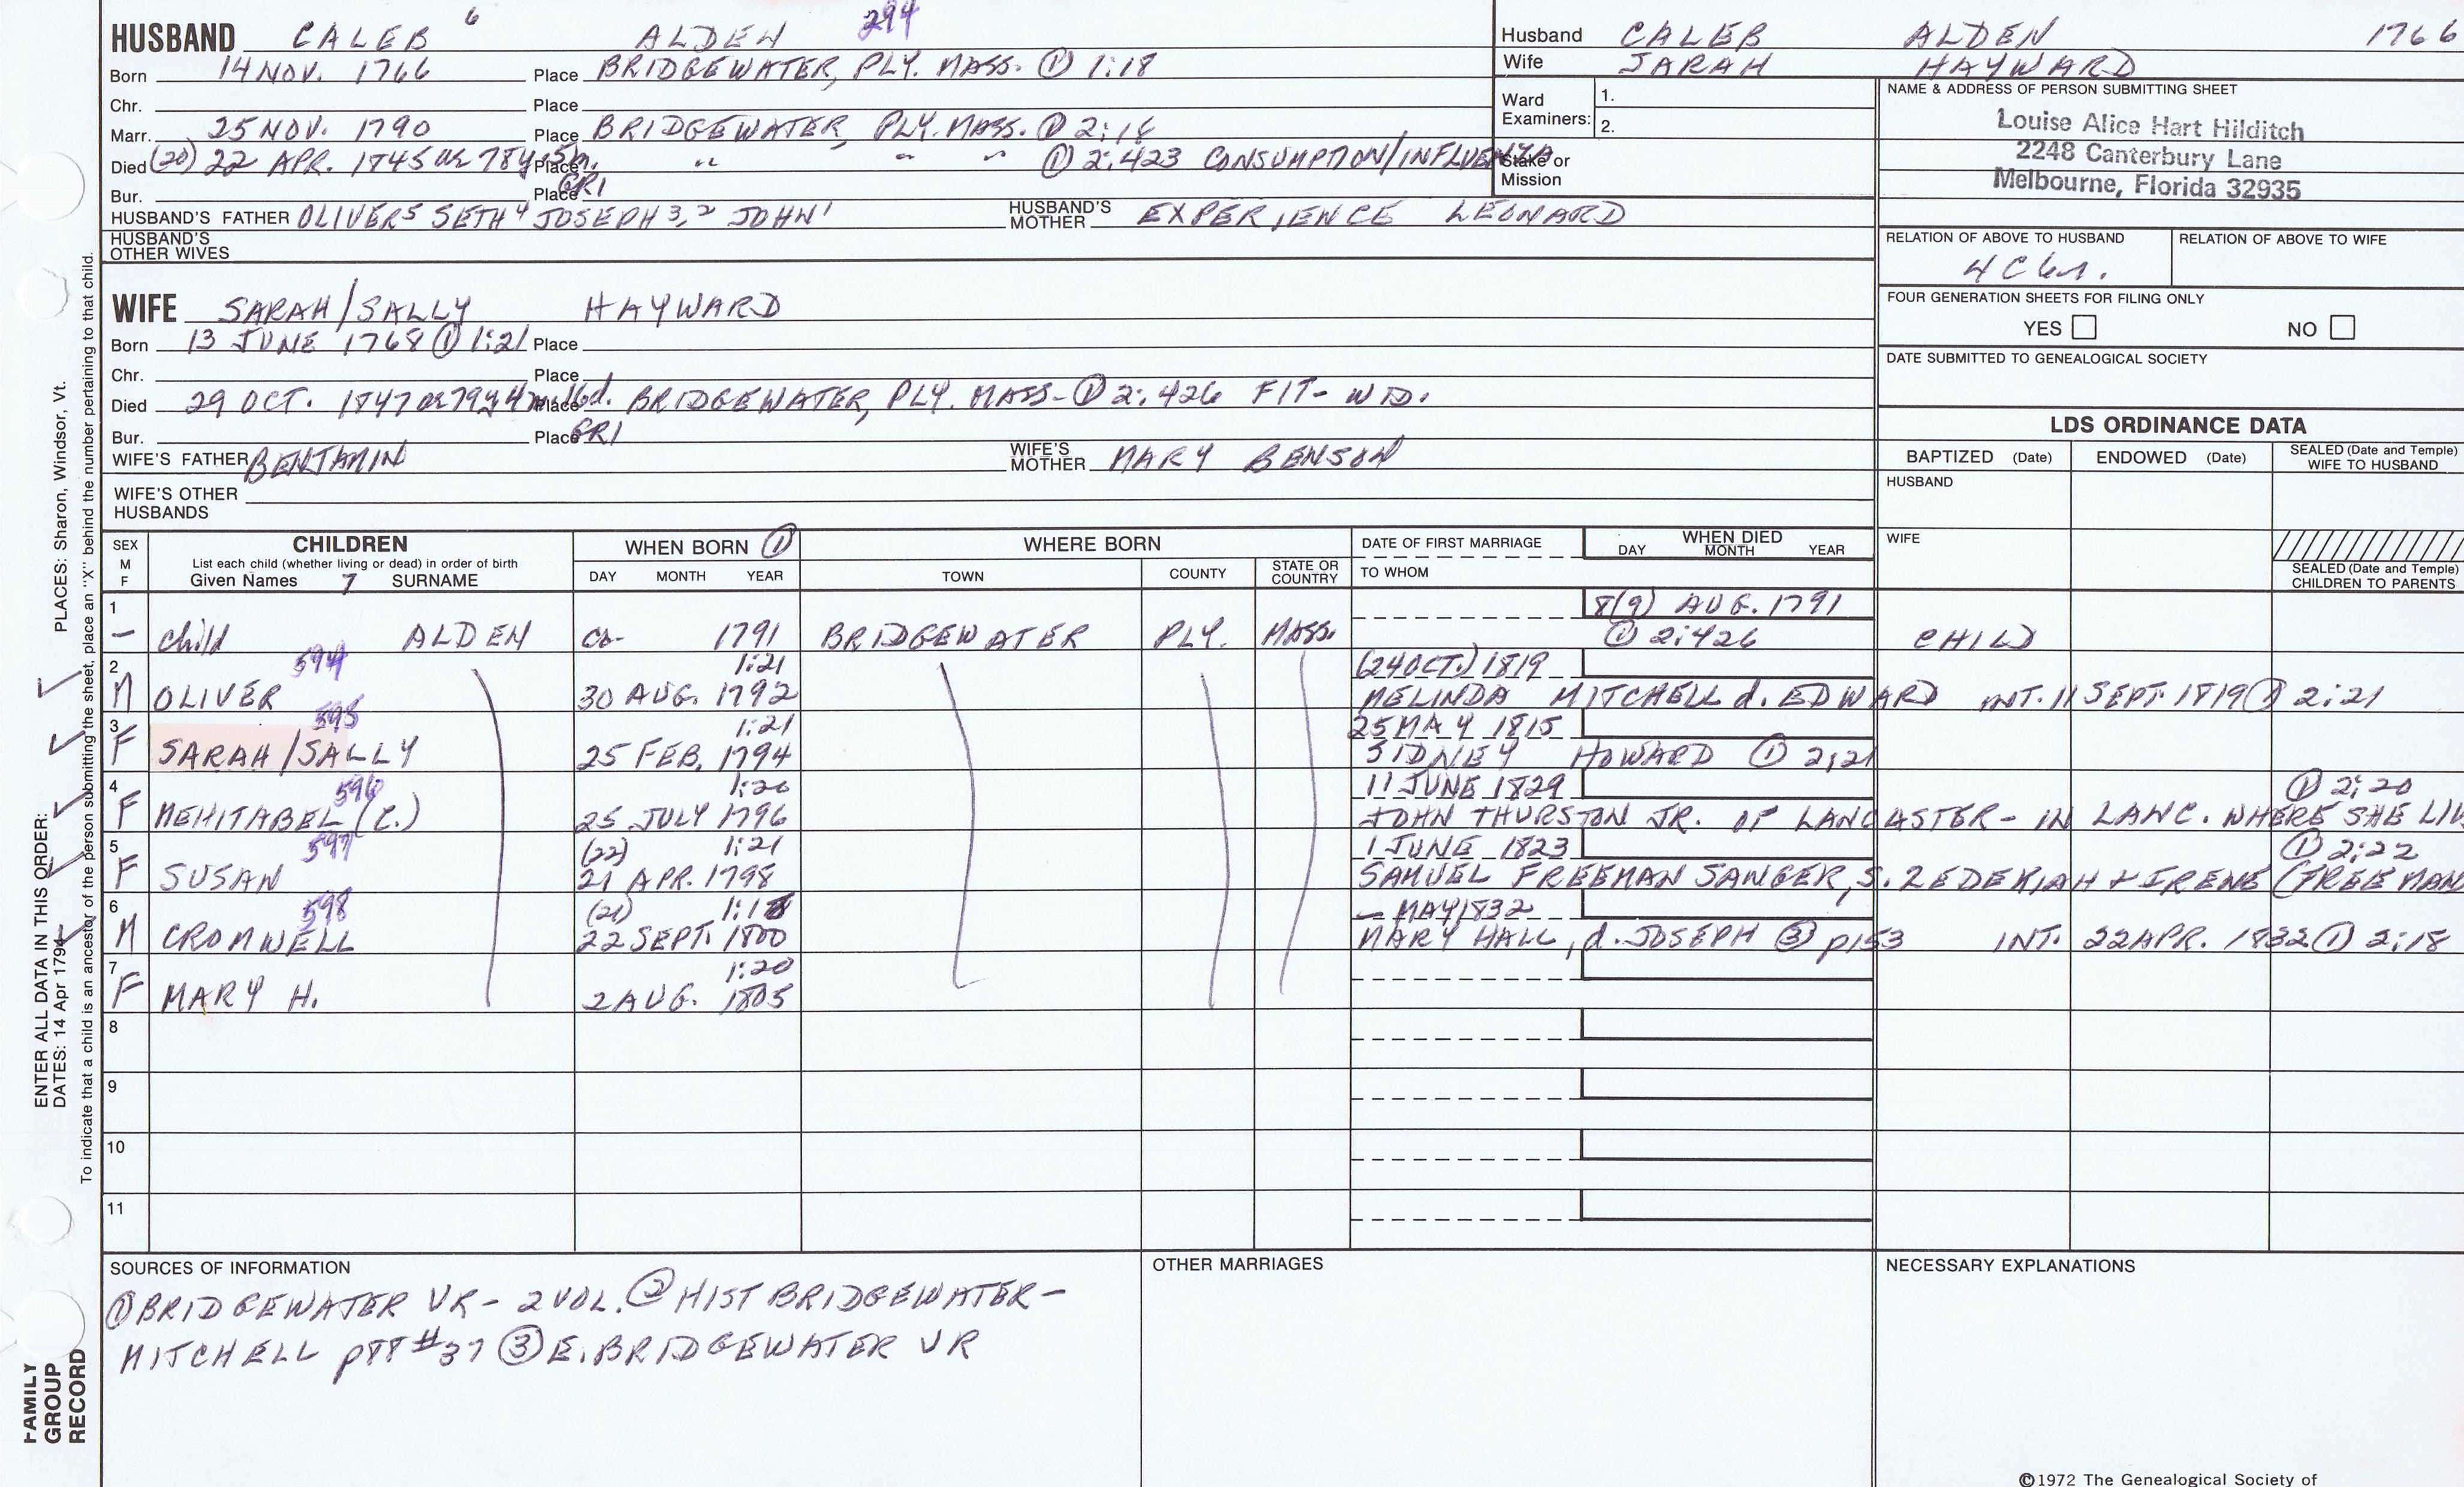 HUSBAND CALEB 6 ALDEN 294
Born 14 NOV. 1766 Place BRIDGEWATER, PLY. MASS. ① 1:18
Chr. Place
Marr. 25 NOV. 1790 Place BRIDGEWATER, PLY. MASS. ① 2:18
Died (20) 22 APR. 1845 ae 78y 5m. Place " " " ① 2:423 CONSUMPTION/INFLUENZA
Bur. Place GR1
HUSBAND'S FATHER OLIVER5 SETH4 JOSEPH3,2 JOHN1 HUSBAND'S MOTHER EXPERIENCE LEONARD
HUSBAND'S OTHER WIVES
WIFE SARAH/SALLY HAYWARD
Born 13 JUNE 1768 ① 1:21 Place
Chr. Place
Died 29 OCT. 1847 ae 79y 4m 16d. Place BRIDGEWATER, PLY. MASS- ① 2:426 FIT- WD.
Bur. Place GR1
WIFE'S FATHER BENJAMIN WIFE'S MOTHER MARY BENSON
WIFE'S OTHER HUSBANDS
Husband CALEB ALDEN 1766
Wife SARAH HAYWARD
Ward Examiners: 1.
2.
Stake or Mission
NAME & ADDRESS OF PERSON SUBMITTING SHEET
Louise Alice Hart Hilditch
2248 Canterbury Lane
Melbourne, Florida 32935
RELATION OF ABOVE TO HUSBAND RELATION OF ABOVE TO WIFE
4C
FOUR GENERATION SHEETS FOR FILING ONLY
YES NO
DATE SUBMITTED TO GENEALOGICAL SOCIETY
LDS ORDINANCE DATA
BAPTIZED (Date) ENDOWED (Date) SEALED (Date and Temple) WIFE TO HUSBAND
HUSBAND
WIFE
SEALED (Date and Temple) CHILDREN TO PARENTS
SEX M F
CHILDREN
List each child (whether living or dead) in order of birth
Given Names 7 SURNAME
WHEN BORN ①
DAY MONTH YEAR
WHERE BORN
TOWN COUNTY STATE OR COUNTRY
DATE OF FIRST MARRIAGE
TO WHOM
WHEN DIED
DAY MONTH YEAR
1 8(9) AUG. 1791
- child ALDEN ca- 1791 BRIDGEWATER PLY. MASS. ① 2:426 CHILD
2 594 1:21 (24 OCT.) 1819
M OLIVER 30 AUG. 1792 MELINDA MITCHELL d. EDWARD INT. 11 SEPT. 1819 ① 2:21
3 595 1:21 25 MAY 1815
F SARAH/SALLY 25 FEB. 1794 SIDNEY HOWARD ① 2:21
4 596 1:20 11 JUNE 1829 ① 2:20
F MEHITABEL (C.) 25 JULY 1796 JOHN THURSTON JR. OF LANCASTER- IN LANC. WHERE SHE
5 597 (22) 1:21 1 JUNE 1823 ① 2:22
F SUSAN 21 APR. 1798 SAMUEL FREEMAN SANGER, S. ZEDEKIAH + IRENE (FREEMAN
6 598 (21) 1:18 - MAY 1832
M CROMWELL 22 SEPT. 1800 MARY HALL, d. JOSEPH ③ p153 INT. 22 APR. 1832 ① 2:18
7 1:20
F MARY H. 2 AUG. 1805
8
9
10
11
SOURCES OF INFORMATION
① BRIDGEWATER VR- 2 VOL. ② HIST BRIDGEWATER-
MITCHELL p88 #37 ③ E. BRIDGEWATER VR
OTHER MARRIAGES
NECESSARY EXPLANATIONS
©1972 The Genealogical Society of
PLACES: Sharon, Windsor, Vt.
ENTER ALL DATA IN THIS ORDER:
DATES: 14 Apr 1794
To indicate that a child is an ancestor of the person submitting the sheet, place an "X" behind the number pertaining to that child.
FAMILY
GROUP
RECORD